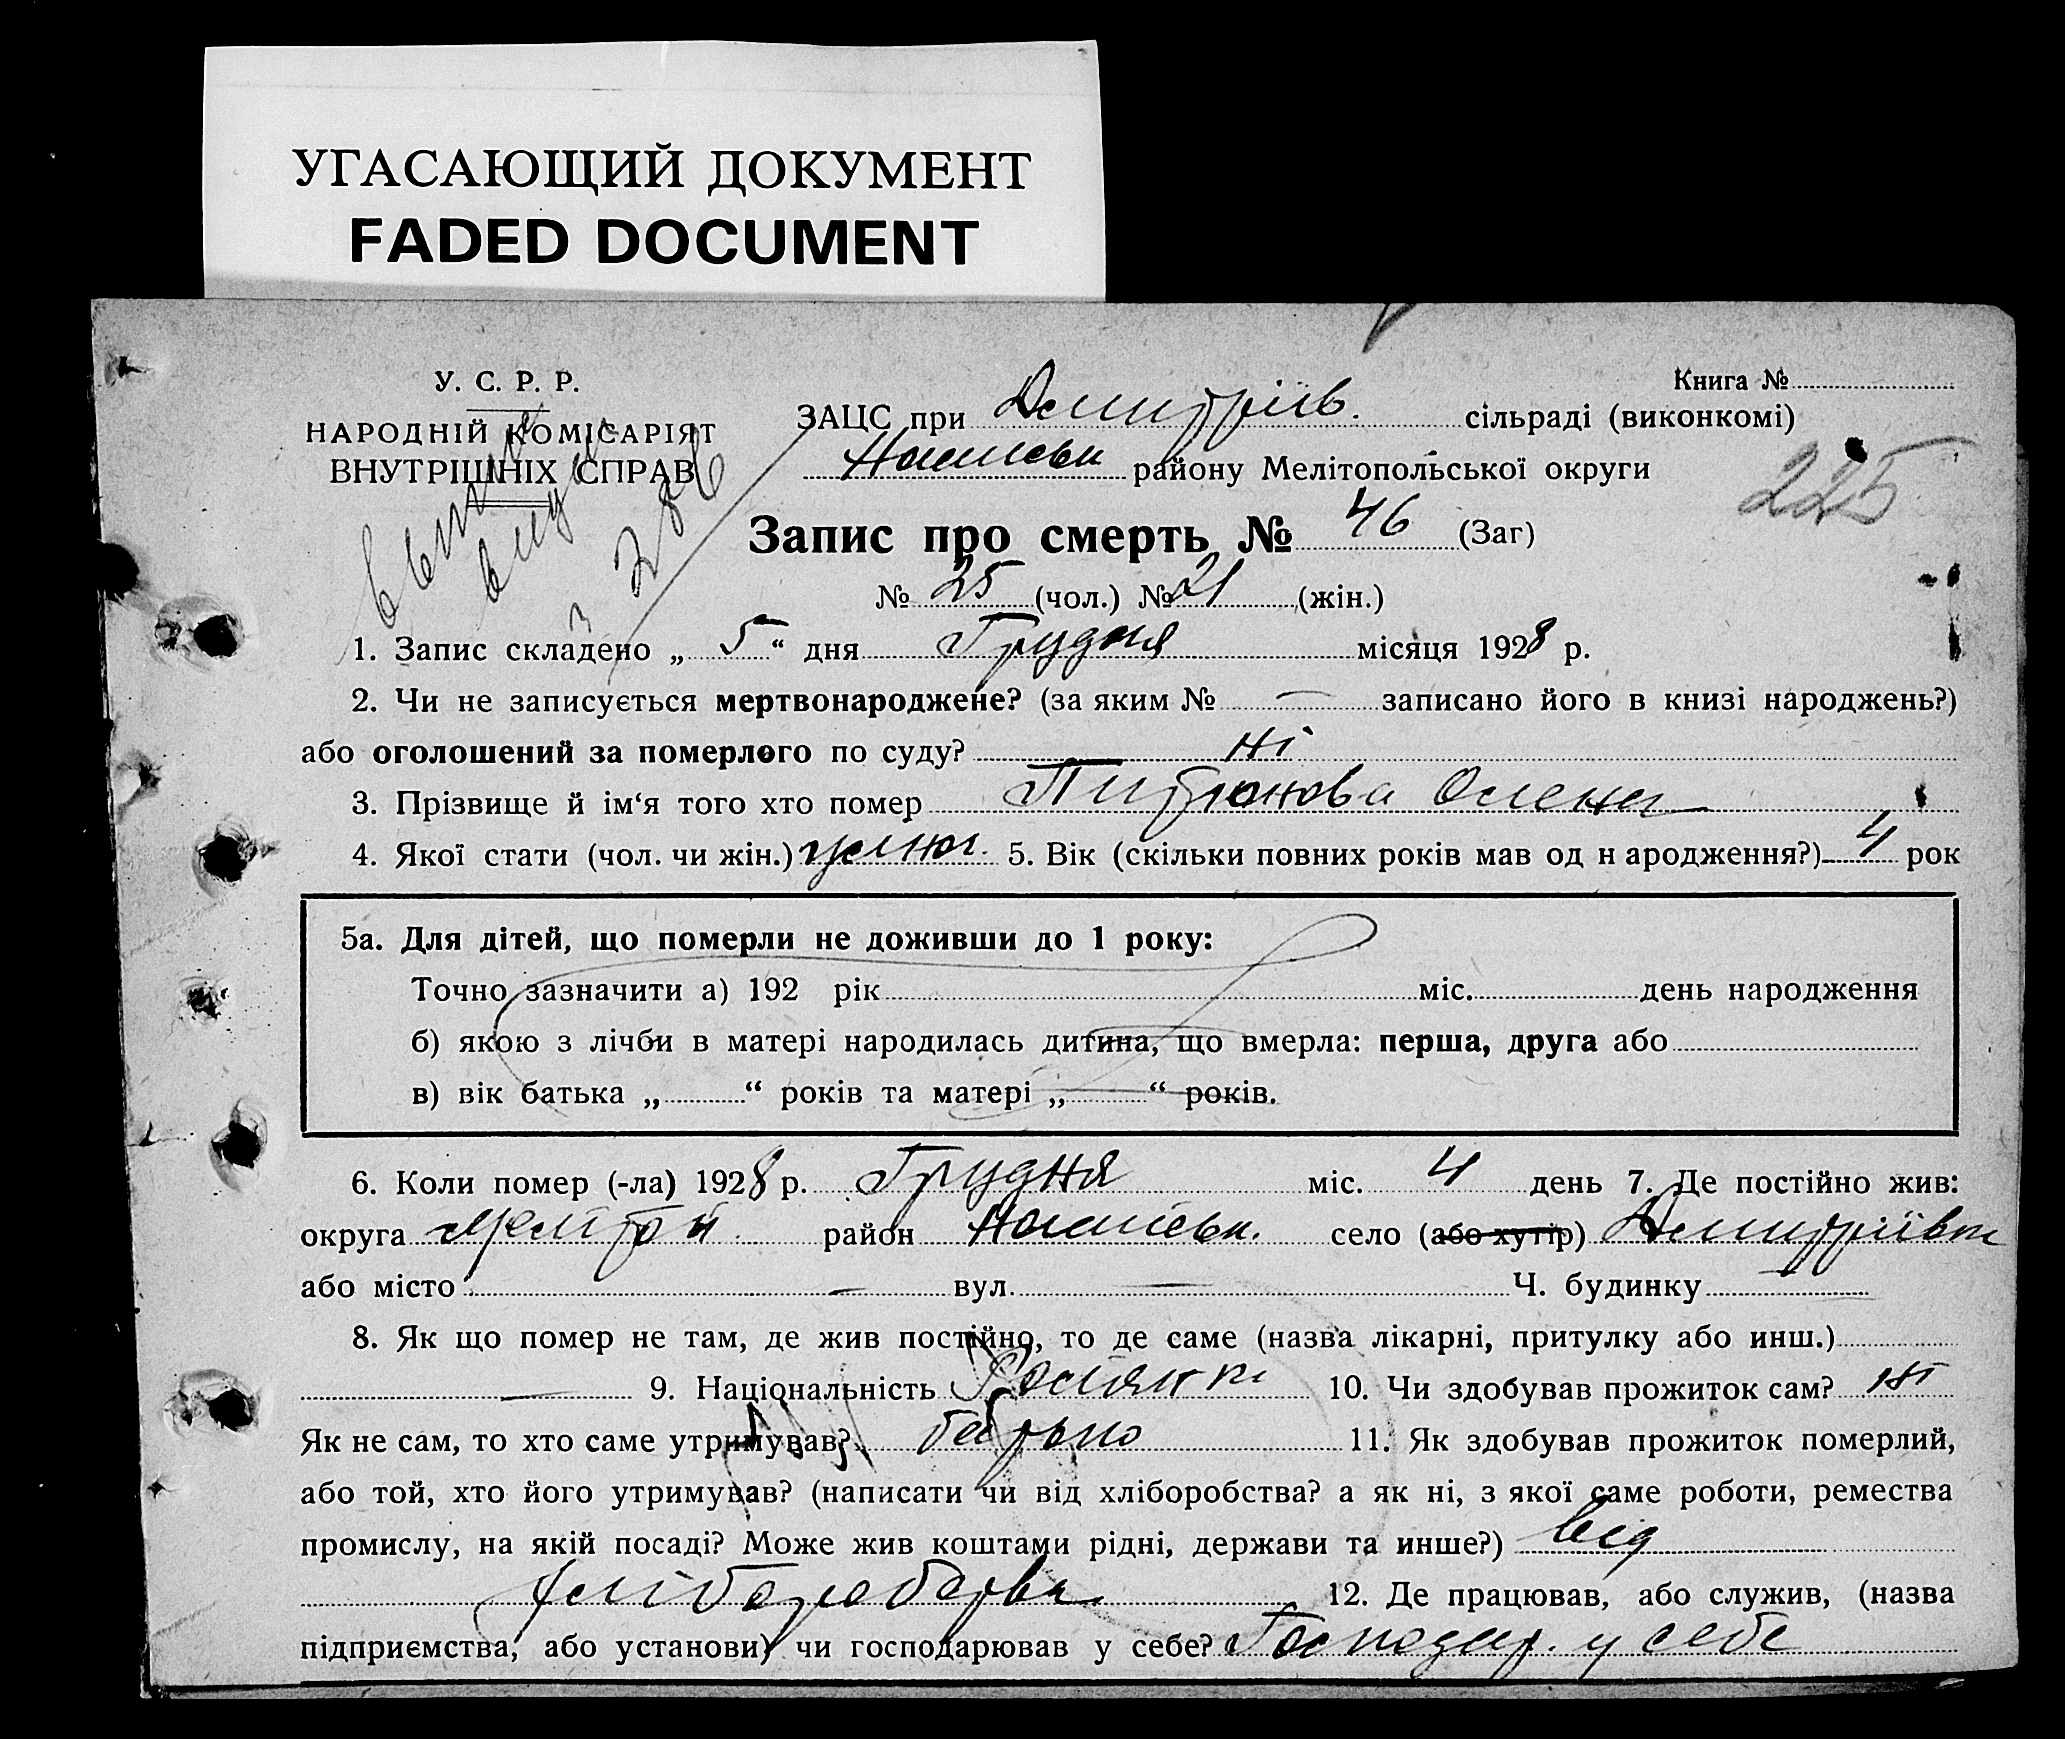 УГАСАЮЩИЙ ДОКУМЕНТ
FADED DOCUMENT
У. С. Р. Р.
НАРОДНІЙ КОМІСАРІЯТ
ВНУТРІШНІХ СПРАВ
Книга №
ЗАЦС при Дмитрів. сільраді (виконкомі)
району Мелітопольської округи
225
Запис про смерть № 46 (Заг)
№ 25 (чол.) № 21 (жін.)
1. Запис складено „ 5 “ дня Грудня місяця 1928 р.
2. Чи не записується мертвонароджене? (за яким № — записано його в книзі народжень?)
або оголошений за померлого по суду? ні
3. Прізвище й ім‘я того хто помер Олена
4. Якої стати (чол. чи жін.) 5. Вік (скільки повних років мав од н ародження?) 4 рок
5а. Для дітей, що померли не доживши до 1 року:
Точно зазначити а) 192 рік міс. день народження
б) якою з лічби в матері народилась дитина, що вмерла: перша, друга або
в) вік батька „ “ років та матері „ “ років.
6. Коли помер (-ла) 1928 р. Грудня міс. 4 день 7. Де постійно жив:
округа район село (або хутір) Дмитрівка
або місто — вул. — Ч. будинку —
8. Як що помер не там, де жив постійно, то де саме (назва лікарні, притулку або инш.)
— 9. Національність Росіянка 10. Чи здобував прожиток сам? ні
Як не сам, то хто саме утримував? батько 11. Як здобував прожиток померлий,
або той, хто його утримував? (написати чи від хліборобства? а як ні, з якої саме роботи, ремества
промислу, на якій посаді? Може жив коштами рідні, держави та инше?) від
хліборобства 12. Де працював, або служив, (назва
підприємства, або установи) чи господарював у себе? Господар. у себе